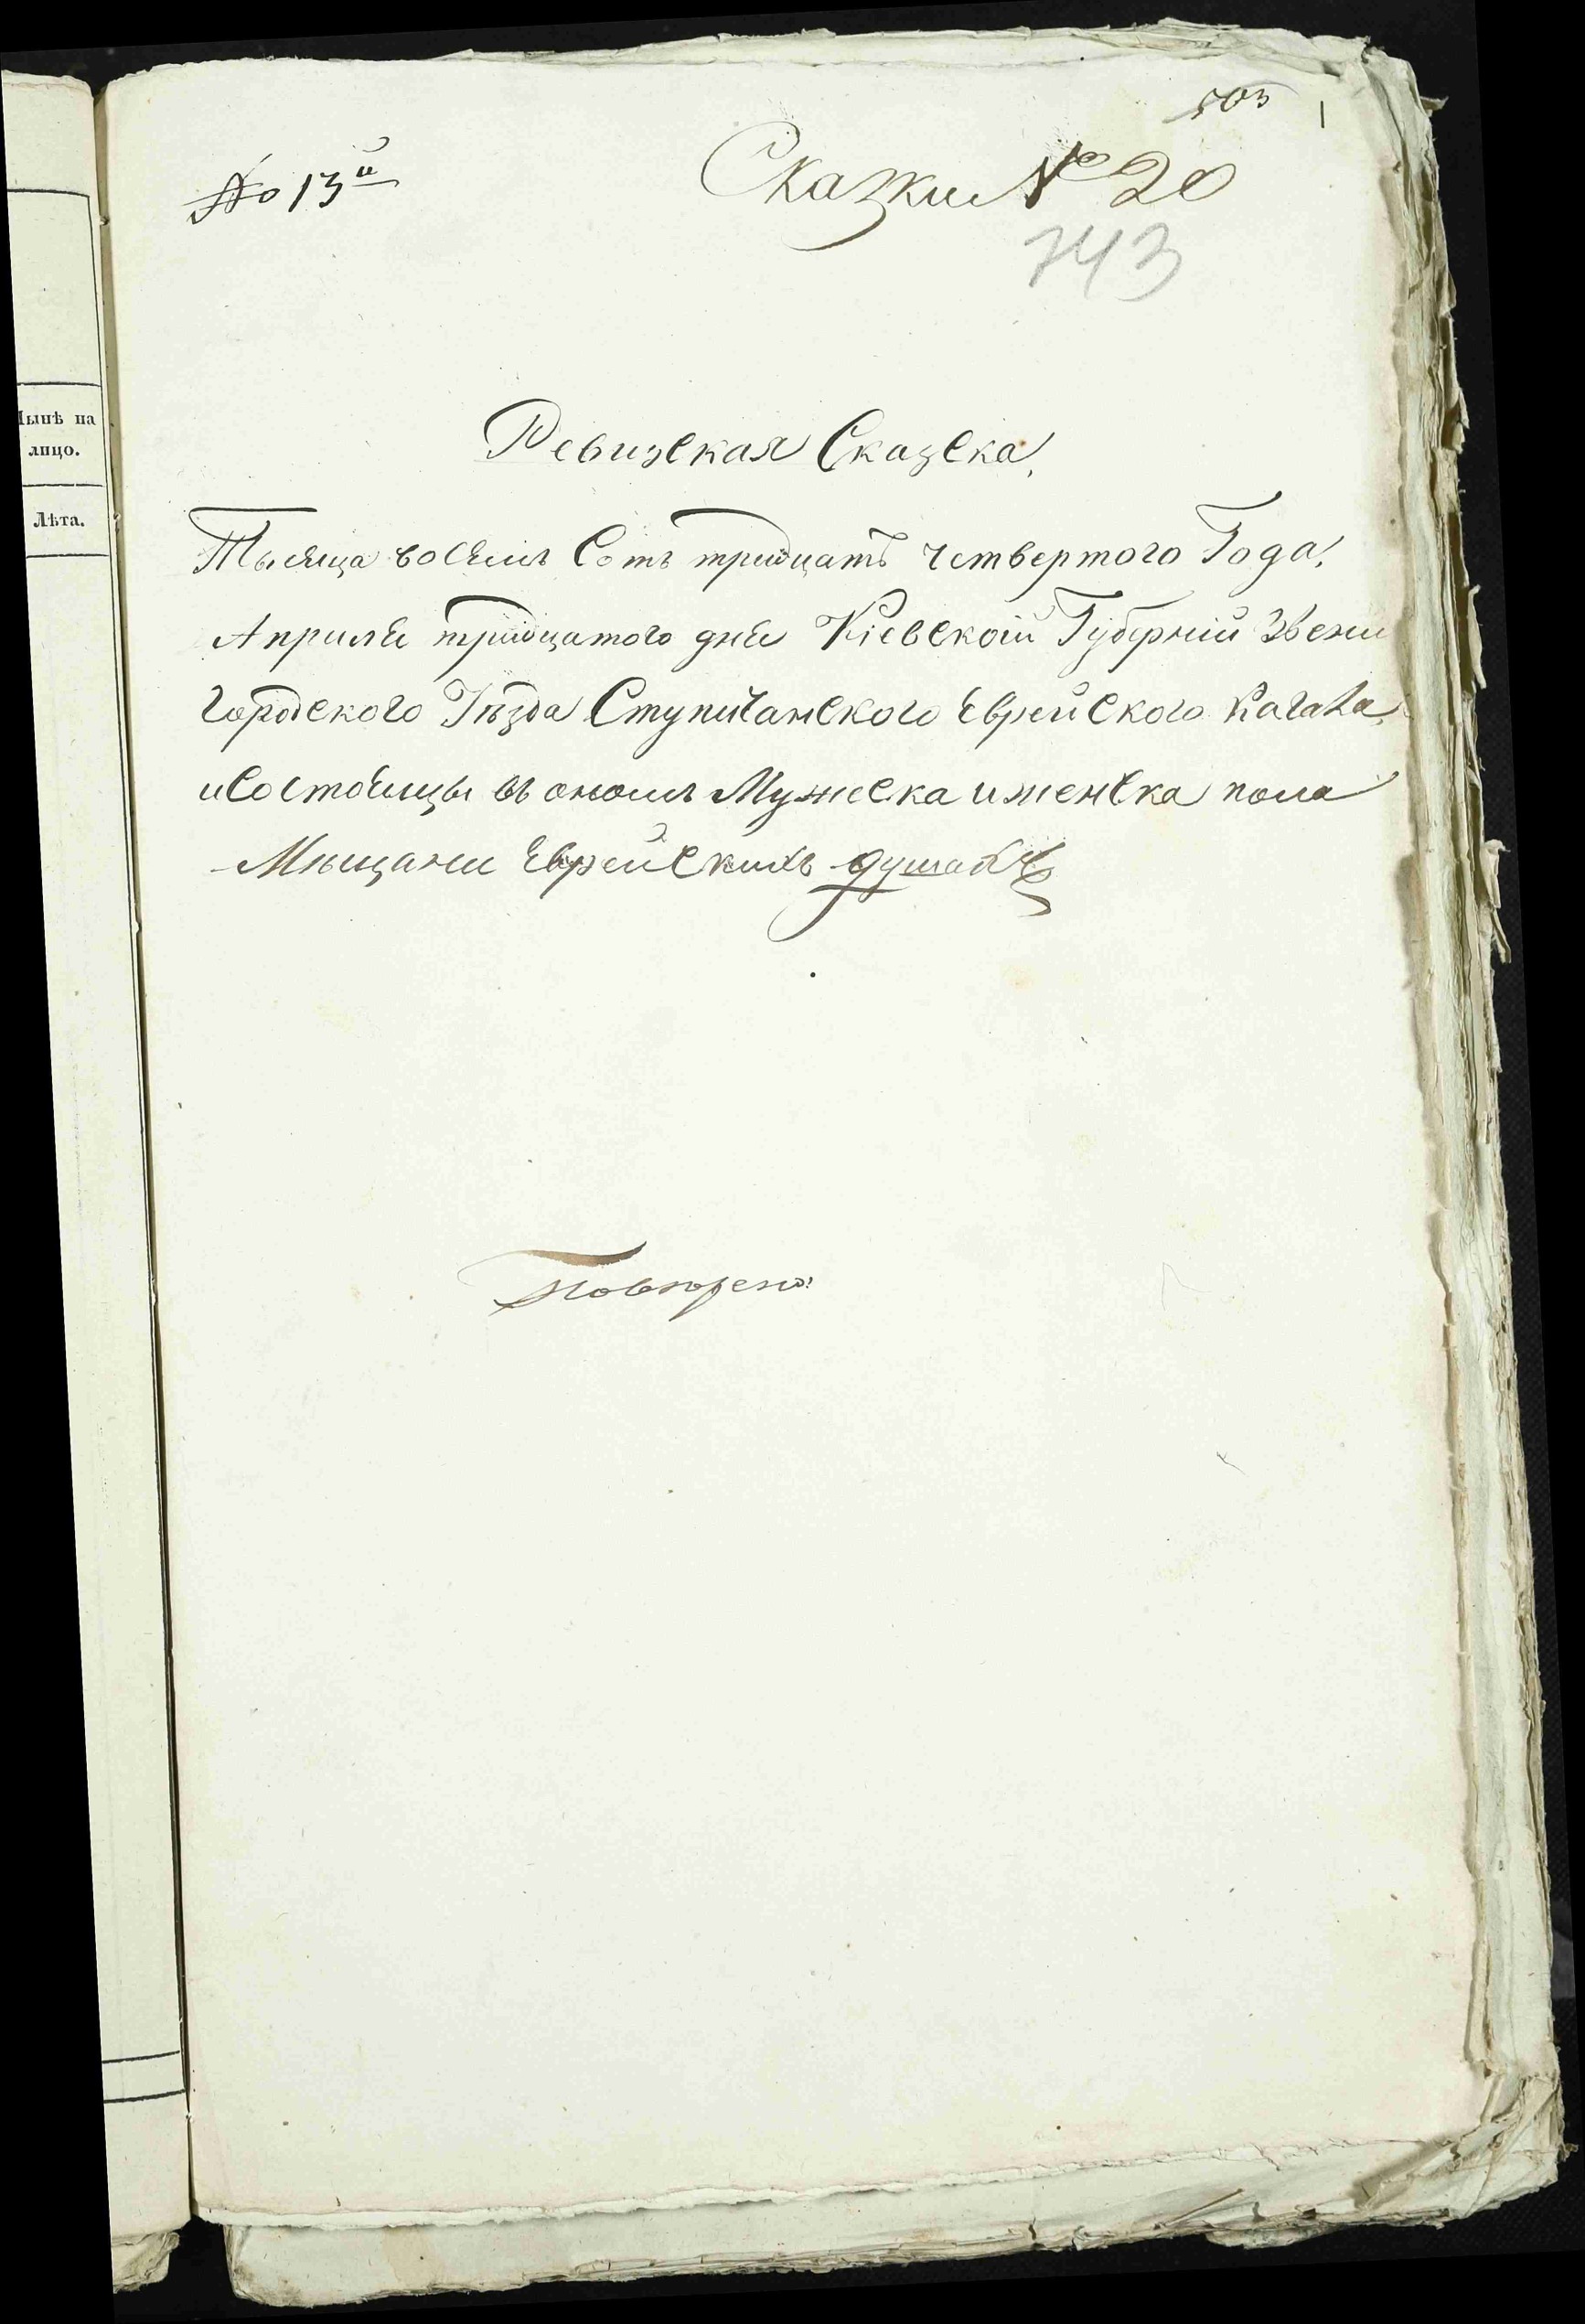 Нынѣ на
лицо.
Лѣта.
1
№ 13й
Сказки № 20
743
Ревизская Сказска,
Тысяца восемъ Сотъ тридцатъ четвертого Года,
Априля тридцатого дня Кіевскои Губерніи Звени
городского Уѣзда Ступичанского Еврейского Кагала,
и Состоящы въ ономъ Мужеска и женска пола
Мѣщани Еврейскихъ душахъ
Повѣрено